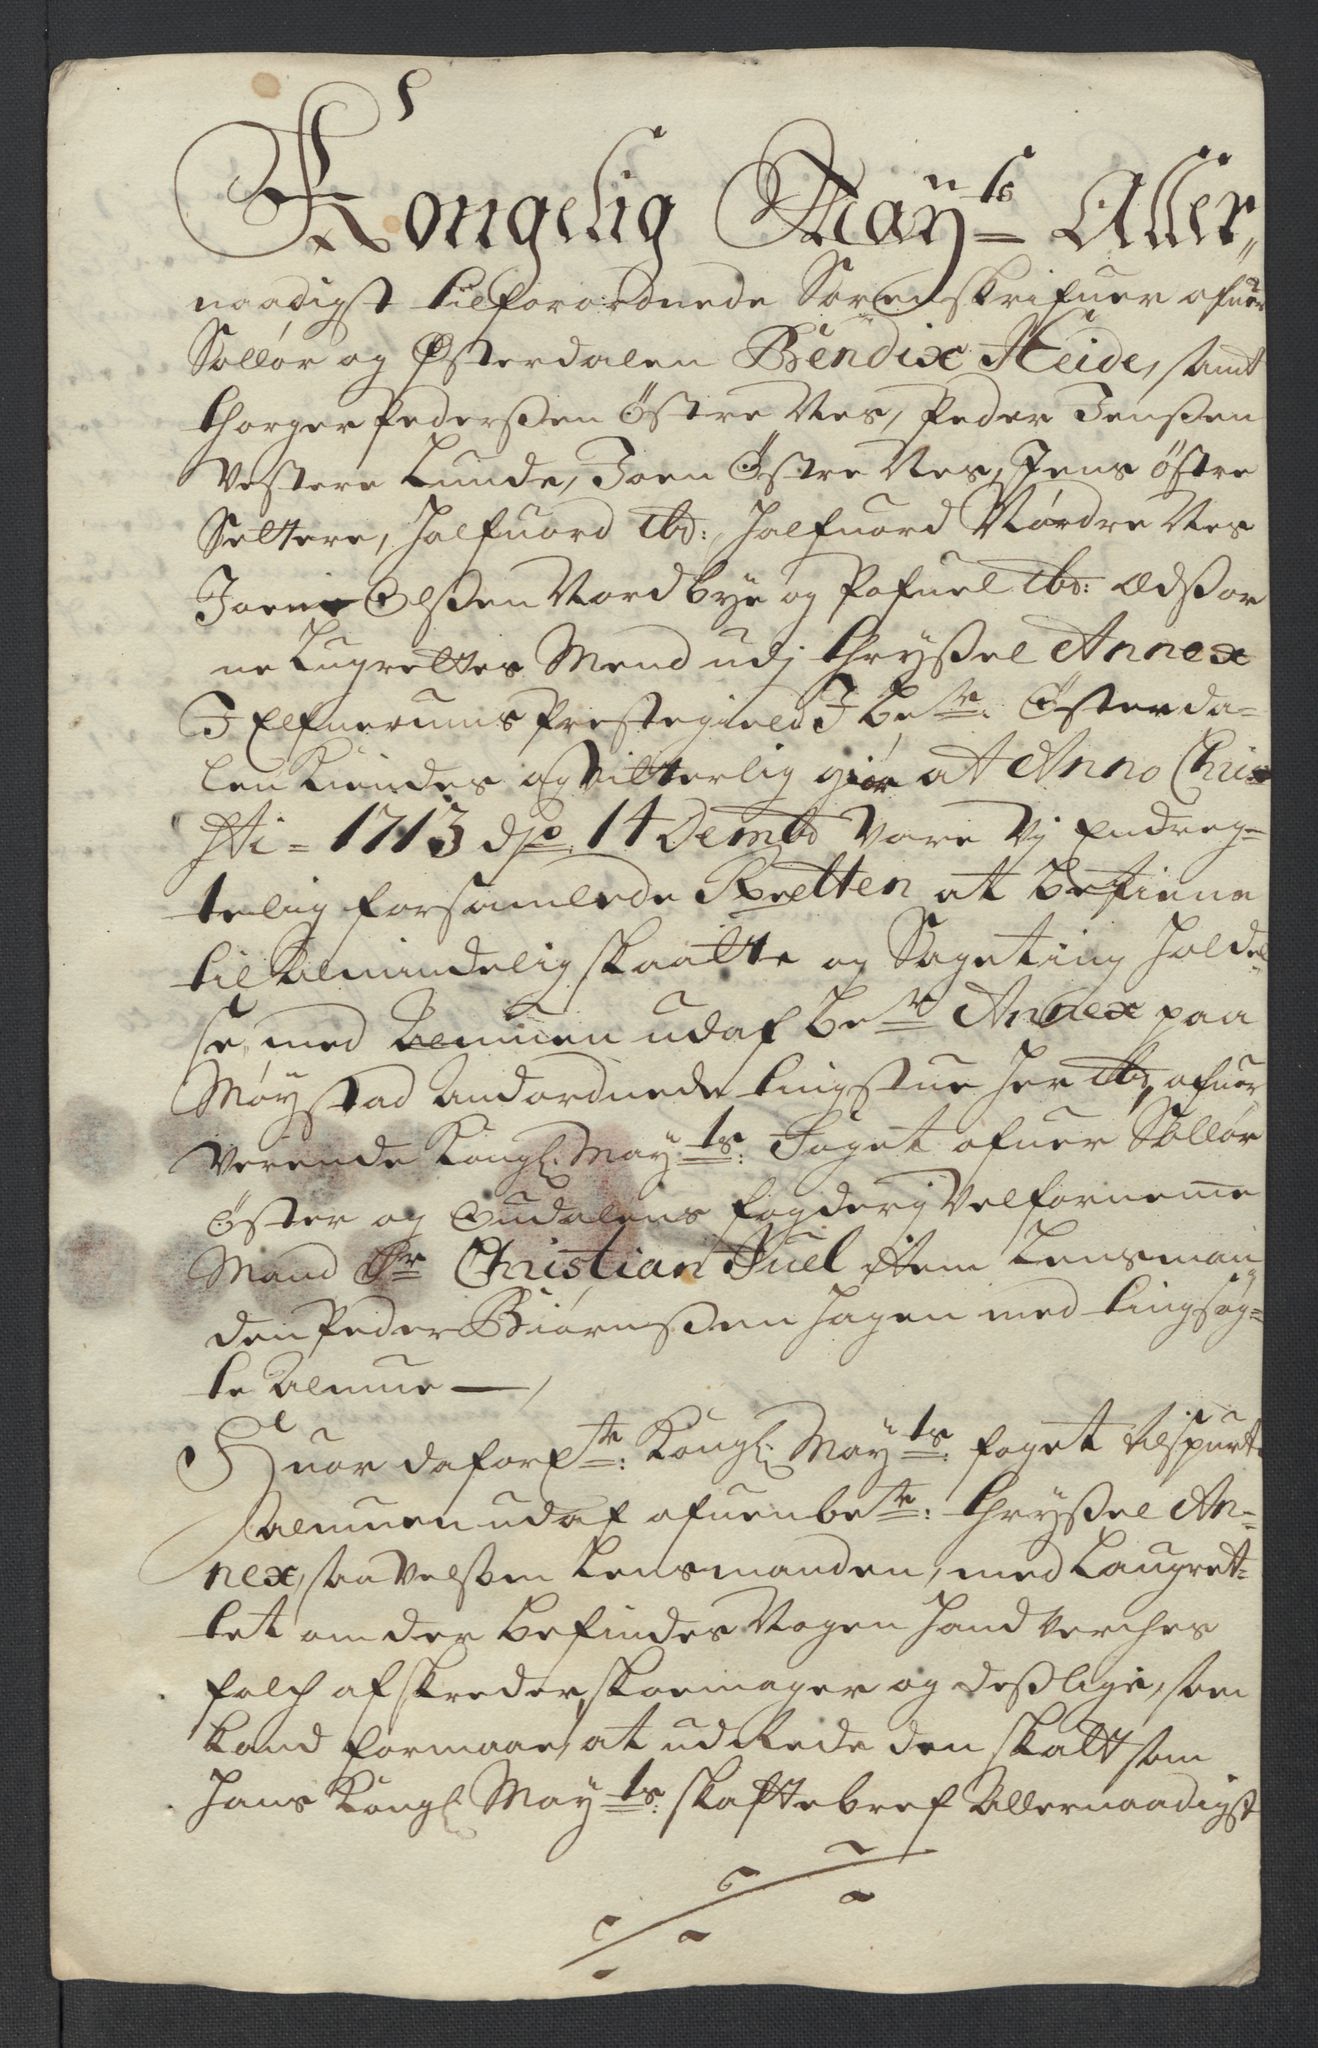 Kongelig Mayts Aller„
naadigst tilforordnede Sorenskrifuer ofuer
Sollør og Østerdalen Bendix Heide, samt
Thorger Pederßen Östre Nes, Peder Jenßen
Vestere Lunde, Joen Östre Nes, Jens östre
Seltere, Halfuord ibd: Halfuord Nordre Nes
Joen Olßen Nordbye og Pofuel ibd: Ædßor
ne Lugrettes Mend udj Thryßel Annex
I Elfuerums Prestegield I bete: Österda=
len Kiendes og vitterlig giør at Anno Chri=
sti = 1713 dend 14 Decembr Vare Vj Endreg=
telig forsamlede Retten at betiene
til Almindelig skaatte og Sageting Holdel„
se, med Almuen udaf bete Annex paa
Møystad Andordnede tingstue her ibd, ofuer
verende Kongl. Mayts: Foget ofuer Sollør
Öster og Oudalens fogderj Velforneme
Mand Sr Christian Juel item Lensman„
den Peder Biørnßen Hagen med tingsøg=
te Almue —,
Huor da forste: Kongl: Mayts: foget tilspurte
Almuen udaf ofuenbete: Thryßel An=
nex, saavelsom Lensmanden, med Laugret=
tet om der befindes Nogen Handverches
folch af skreder, skoemager og deßlige, som
kand formaae, at udrede den skatt som
Hans Kongl Mayts: skattebref Allernaadigst